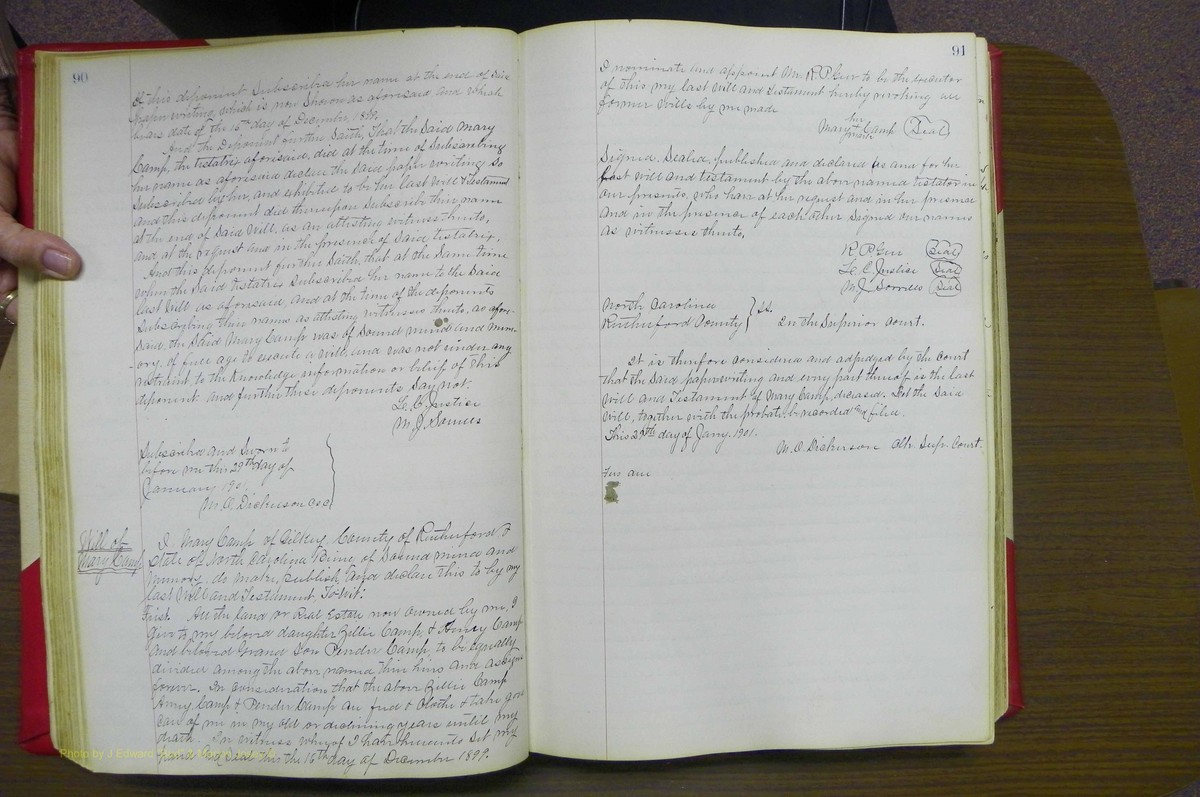 90
of this deponent Subscribe her name at the end of Said
paper writing, which is now Shown as aforesaid and which
bears date of the 16th day of December, 1899.
And the Deponent further Saith, That the Said Mary
Camp, the testatrix aforesaid, did at the time of Subscribing
her name as aforesaid declare the Said paper writing So
Subscribed by her, and exhibited to be her last Will & Testament
and this deponent did thereupon Subscribe their name
at the end of Said Will, as an attesting witness thereto,
and at the request and in the presence of Said testatrix.
And this deponent further Saith, that at the Same time
when the Said testatrix Subscribed her name to the Said
last Will as aforesaid and at the time of the deponents
Subscribing their names as attesting witnesses thereto, as afore-
Said, the Said Mary Camp was of Sound mind and mem-
ory, of full age to execute a Will, and was not under any
restraint, to the Knowledge information or belief of this
deponent: and further these deponents Say not.
L. C. Justice
M. J.
Subscribed and Sworn to
before me this 29th day of
January 1901.
M. O. Dickerson CSC
Will of
Mary Camp
I Mary Camp of Gilkey, County of Rutherford &
State of North Carolina Being of Sound mind and
Memory, do make, publish, and declare this to by my
last Will and Testament, To-wit:
First. All the land or Real Estate now owned by me, I
give to my beloved daughter Zillie Camp, & Henry Camp
And beloved Grand Son Pender Camp, to be equally
divided among the above named their heirs and assigns
forever. In consideration that the above Zillie Camp
Henry Camp & Pender Camp are feed & Clothe & take good
care of me in my old or declining years until my
death. In witness whereof I have hereunto Set my
hand and Seal this the 16th day of December 1899.
Photo by J Edward
91
I nominate and appoint Mr. R P Geer to be the executor
of this my last Will and Testament hereby revoking all
former Wills by me made
her
Mary + Camp (Seal)
mark
Signed, Sealed, published and declared as and for her
last will and testament by the above named testator in
our presents, who have at her request and in her presence
and in the presence of each other Signed our names
as witnesses thereto.
R P Geer (Seal)
L. C. Justice (Seal)
M. J. (Seal)
North Carolina
Rutherford County } SS. In the Superior Court.
It is therefore considered and adjudged by the Court
that the Said paperwriting and every part thereof is the last
Will and Testament of Mary Camp, deceased. Let the Said
Will, together with the probate, be recorded and filed.
This 29th day of Jany. 1901.
M. O. Dickerson Clk Sup. Court.
Fees due